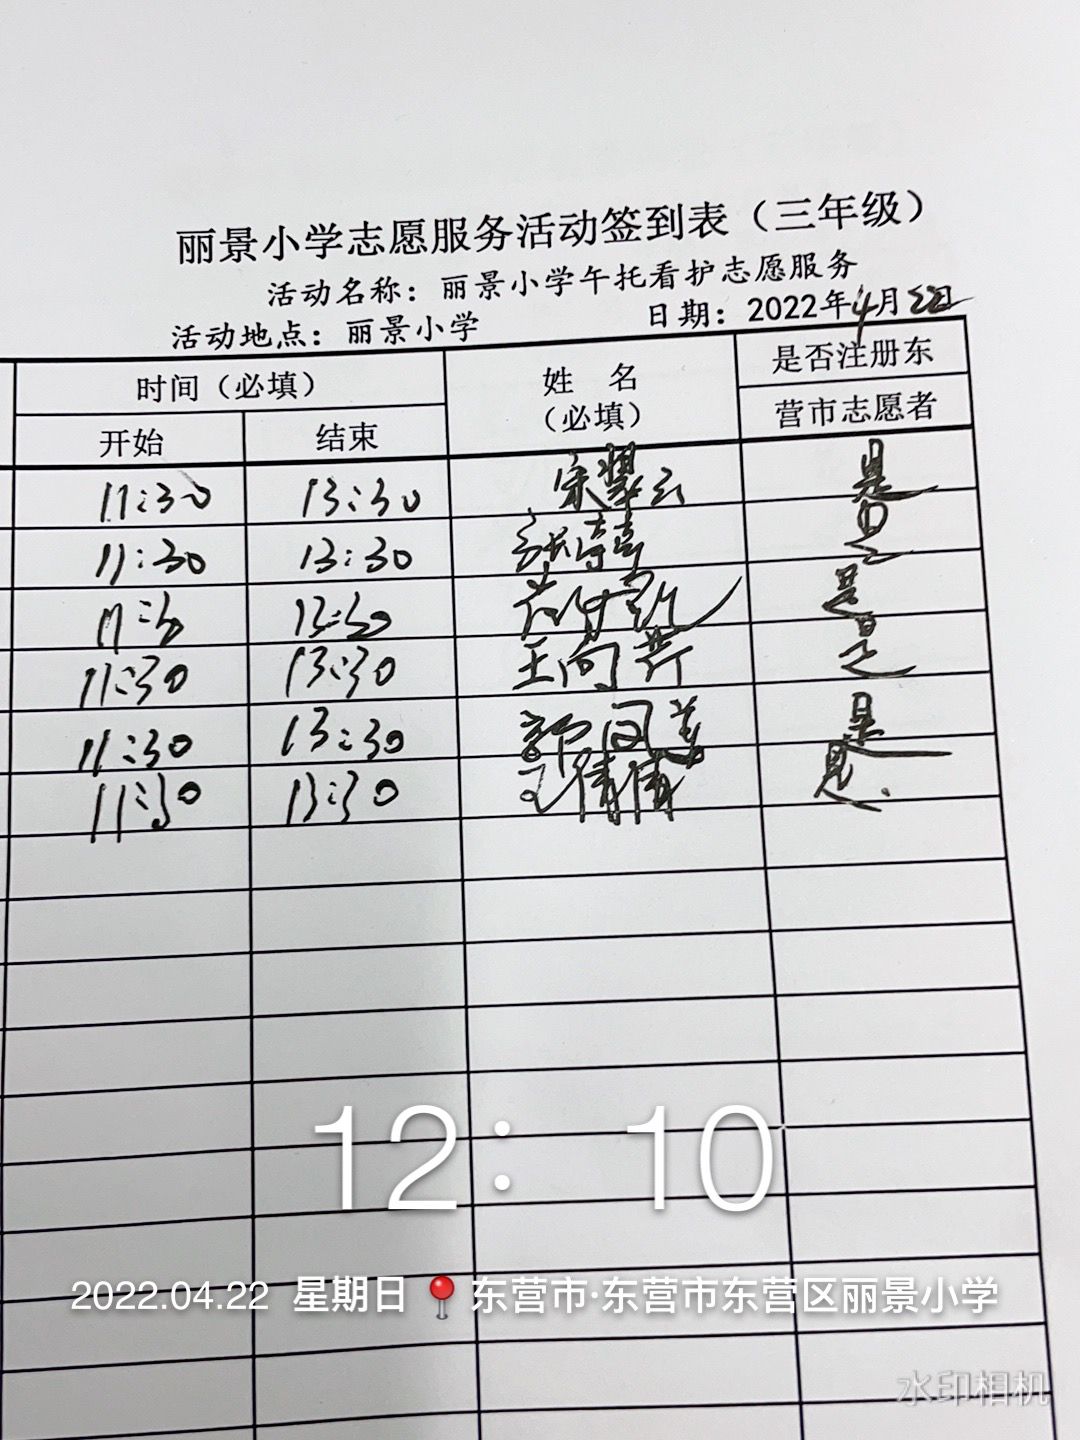 丽景小学志愿服务活动签到表（三年级）
活动名称：丽景小学午托看护志愿服务
活动地点：丽景小学 日期：2022年4月22日
时间（必填） 姓 名（必填） 是否注册东营市志愿者
开始 结束
11:30 13:30 宋翠云 是
11:30 13:30 张婷婷 是
11:30 13:30 是
11:30 13:30 王向芹 是
11:30 13:30 郭凤美 是
11:30 13:30 王倩倩 是
12：10
2022.04.22 星期日 东营市·东营市东营区丽景小学
水印相机